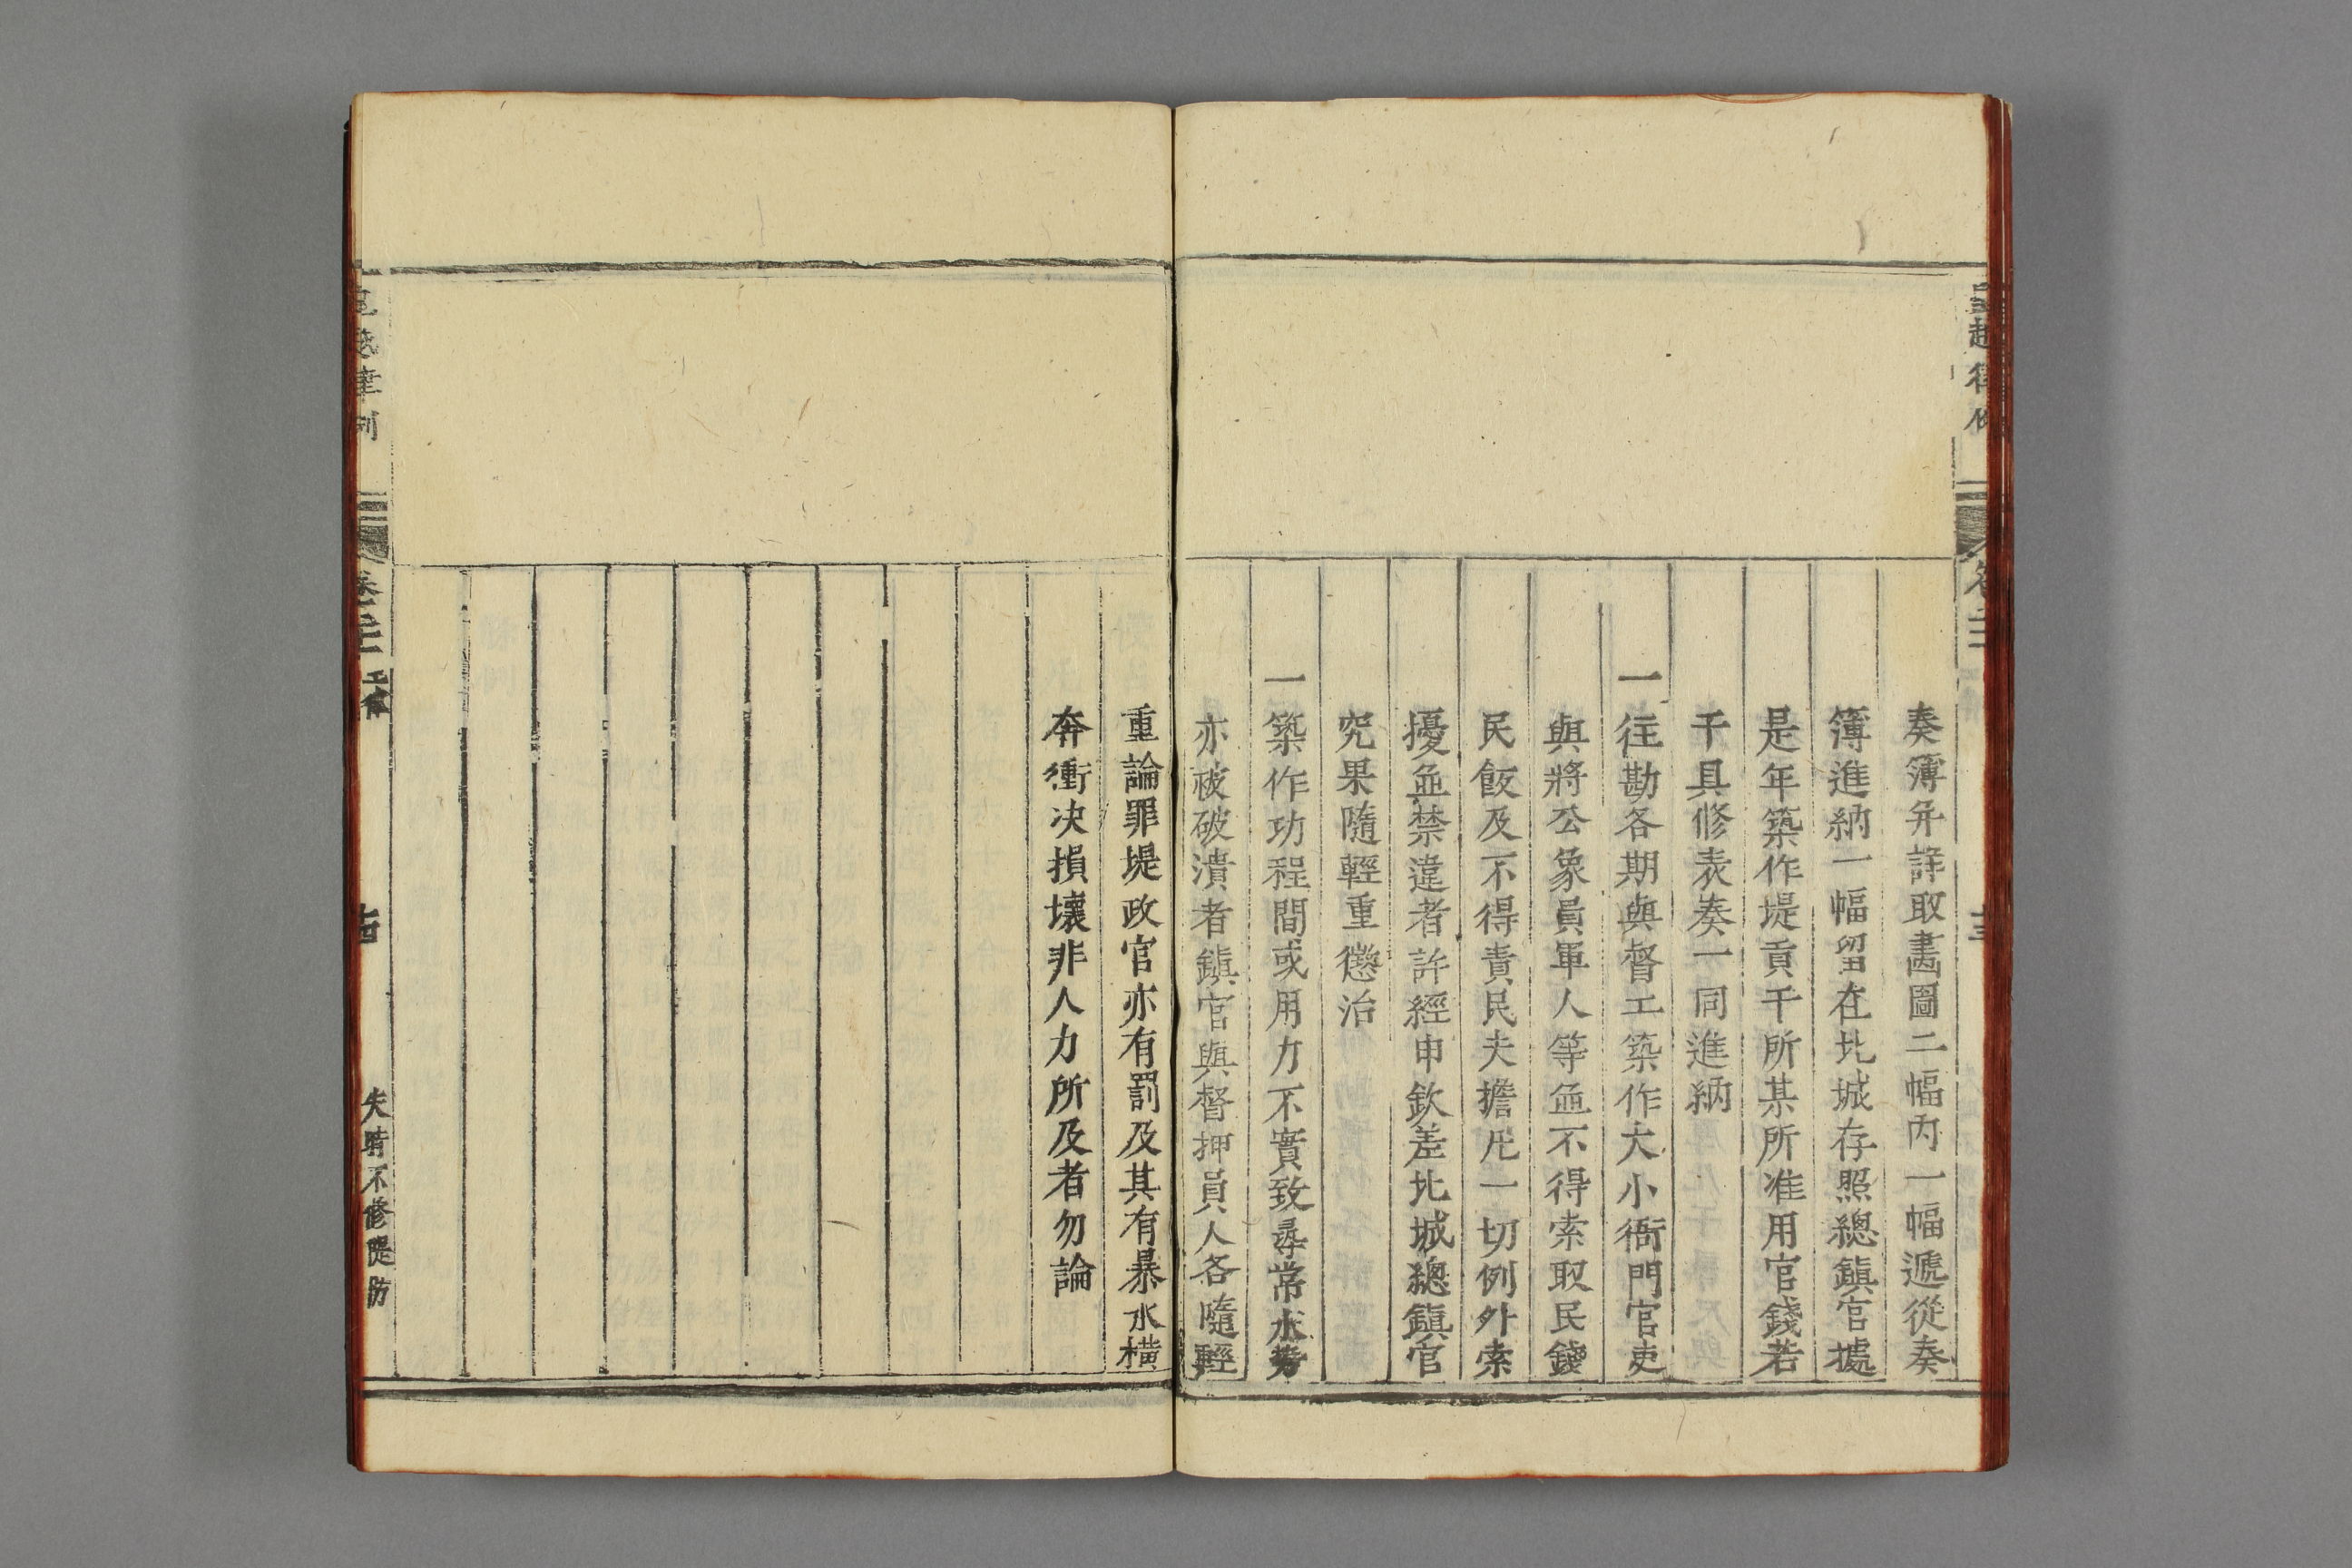 奏簿并詳取畵圖二幅內一幅遞從奏
簿進納一幅留在北城存照總鎮官據
是年築作堤貢干所某所准用官錢若
干具修表奏一同進納
一往勘各期與督工築作大小衙門官吏
與將公象員軍人等並不得索取民錢
民飯及不得責民夫擔凡一切例外索
擾並禁違者許經申欽差北城總鎮官
究果隨輕重懲治
一築作功程間或用力不實致尋常水勢
亦被破潰者鎮官與督押員人各隨輕
重論罪堤政官亦有罰及其有暴水橫
奔衝决損壞非人力所及者勿論
卷二十 工律
十四
失時不修堤防